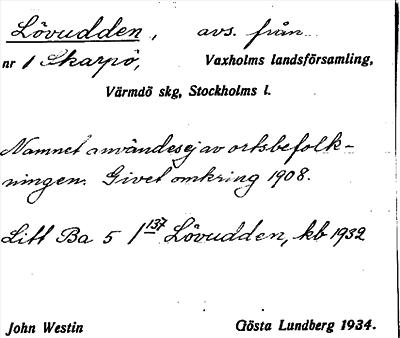 Lövudden, avs. från
nr 1 Skarpö, Vaxholms landsförsamling,
Värmdö skg, Stockholms l.
Namnet användes ej av ortsbefolk-
ningen. Givet omkring 1908.
Litt Ba 5 1137 Lövudden, kb 1932
John Westin Gösta Lundberg 1934.